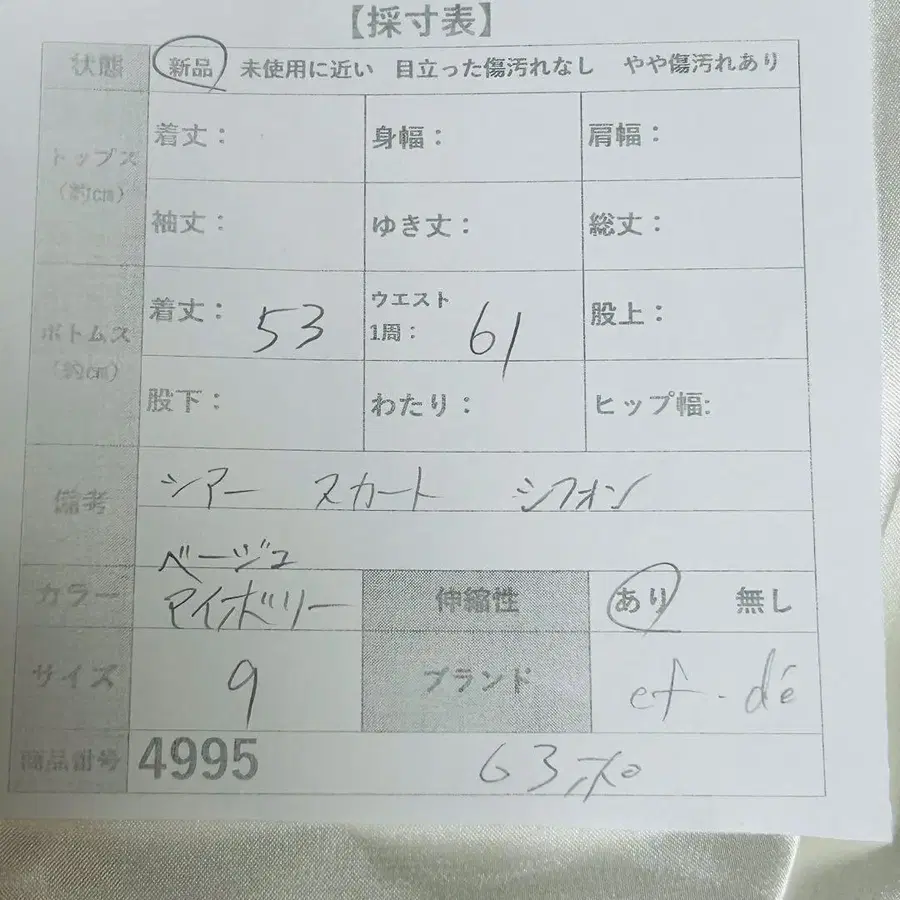 【採寸表】
状態 新品 未使用に近い 目立った傷汚れなし やや傷汚れあり
トップス 着丈： 身幅： 肩幅：
（約cm）
袖丈： ゆき丈： 総丈：
ボトムス 着丈： 53 ウエスト 1周： 61 股上：
（約cm）
股下： わたり： ヒップ幅:
備考 シアー スカート シフォン
ベージュ
カラー アイボリー 伸縮性 あり 無し
サイズ 9 ブランド ef-dé
商品番号 4995 63